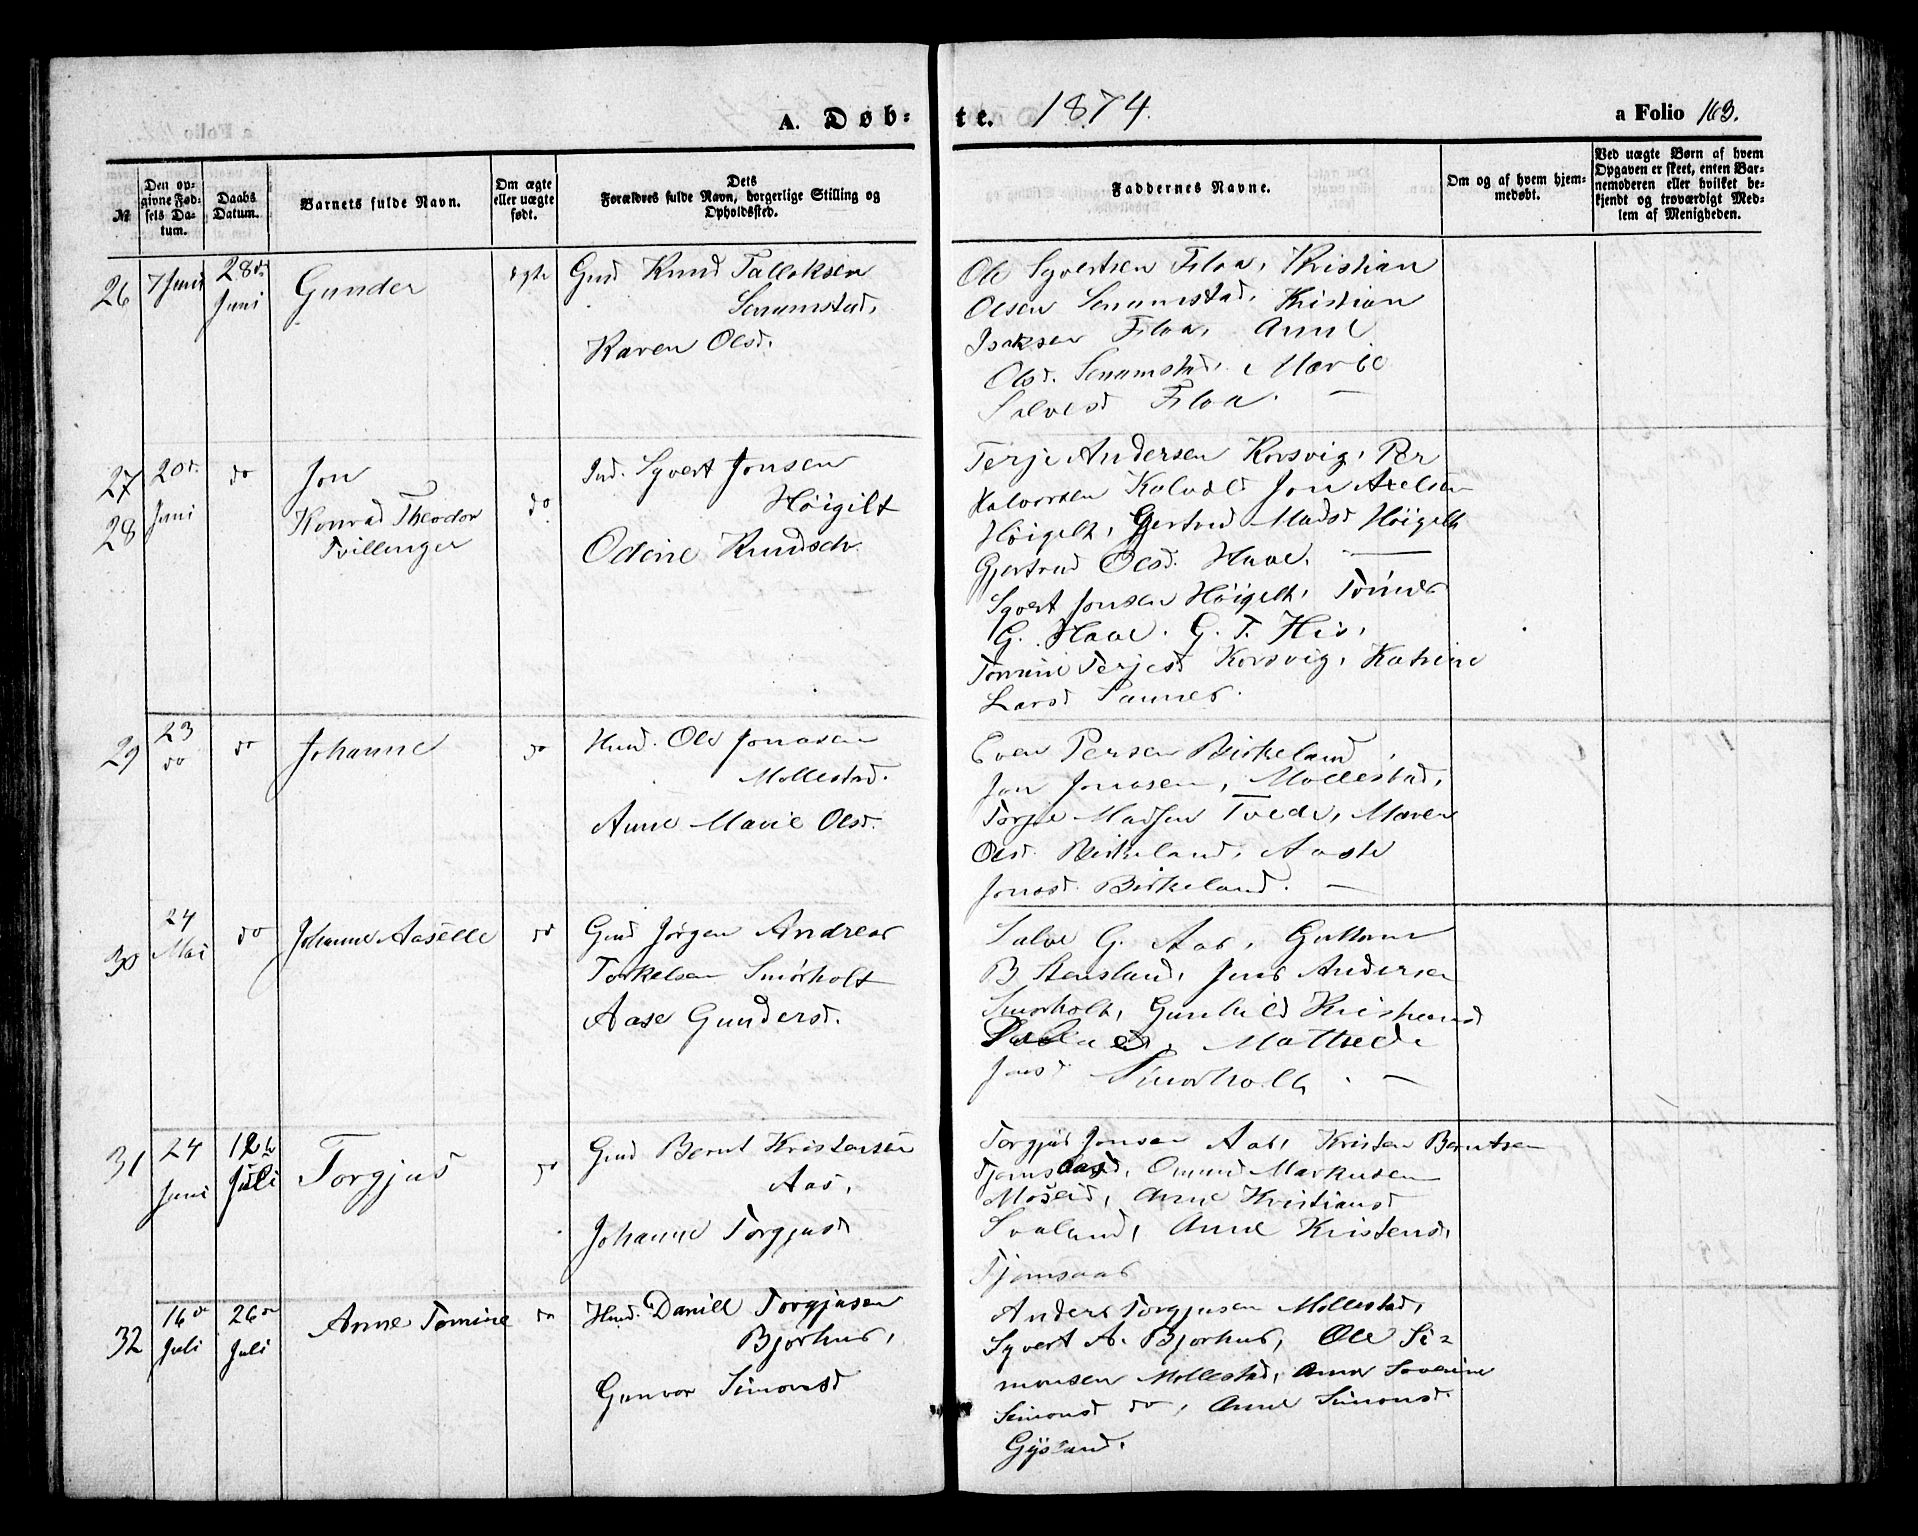 A. Døb-te. 1874. a Folio 163.
№
Den op-
givne Fød-
sels Da-
tum.
Daabs
Datum.
Barnets fulde Navn.
Om ægte
eller uægte
født.
Dets
Forældres fulde Navn, borgerlige Stilling og
Opholdssted.
Faddernes Navne.
Om og af hvem hjem-
medøbt.
Ved uægte Børn af hvem
Opgaven er skeet, enten Bar-
nemoderen eller hvilket be-
kjendt og troværdigt Med-
lem af Menigheden.
26 7 Juni 28de Juni Gunder ægte
Gmd Knud Tallaksen
Senumstad,
Karen Olsd.
Ole Syvertsen Floa, Kristian
Olsen Senumstad, Kristian
Isaksen Floa, Anne
Olsd. Senumstad, Marie
Salvesd Floa. —
27 20d. Juni do Jon
28 Konrad Theodor
Tvillinger
do
Ind. Syvert Jonsen
Höigilt
Odine Knudsdr.
Terje Andersen Korsvig, Per
Halvorsen Jon Axelsen
Höigelt, Gjertrud Madsd Höigelt
Gjertrud Olsd. Haae. —
Syvert Jonsen Höigelt, Tönnes
G. Haae. G. T. His,
Tomine Terjesd Korsvig, Katrine
Larsd
29 23 do do Johanne do
Hmd. Ole Jonasen
Mollestad.
Anne Marie Olsd.
Even Persen Birkeland,
Jon Jonasen, Mollestad,
Torje Madsen Tvede, Maren
Olsd. Birkeland, Aaste
Jonsd. Birkeland. —
30 24 Mai do Johanne Aaselle do
Gmd Jörgen Andreas
Torkelsen Smörholt
Aase Gundersd.
Salve G. Aas, Guttorm
B Stensland, Jens Andersen
Smörholt, Gunhild Kristensd
Mathede
Jensd Smorholt. —
31 24 Juni 12te Juli Torgjus do
Gmd Bernt Kristensen
Aas,
Johanne Torgjusd
Torgjus Jonsen Aas, Kristen Berntsen
Tjomsaas, Omund Markusen
Moseid, Anne Kristiansd
Svaland, Anne Kristensd,
Tjomsaas
32 16de Juli 26de Juli Anne Tomine do
Hmd. Daniel Torgjusen
Bjorhus,
Gunvor Simonsd
Anders Torgjusen Mollestad,
Syvert A. Bjorhus, Ole Si-
monsen Mollestad, Anne Severine
Simonsd do, Anne Simonsd
Gysland.